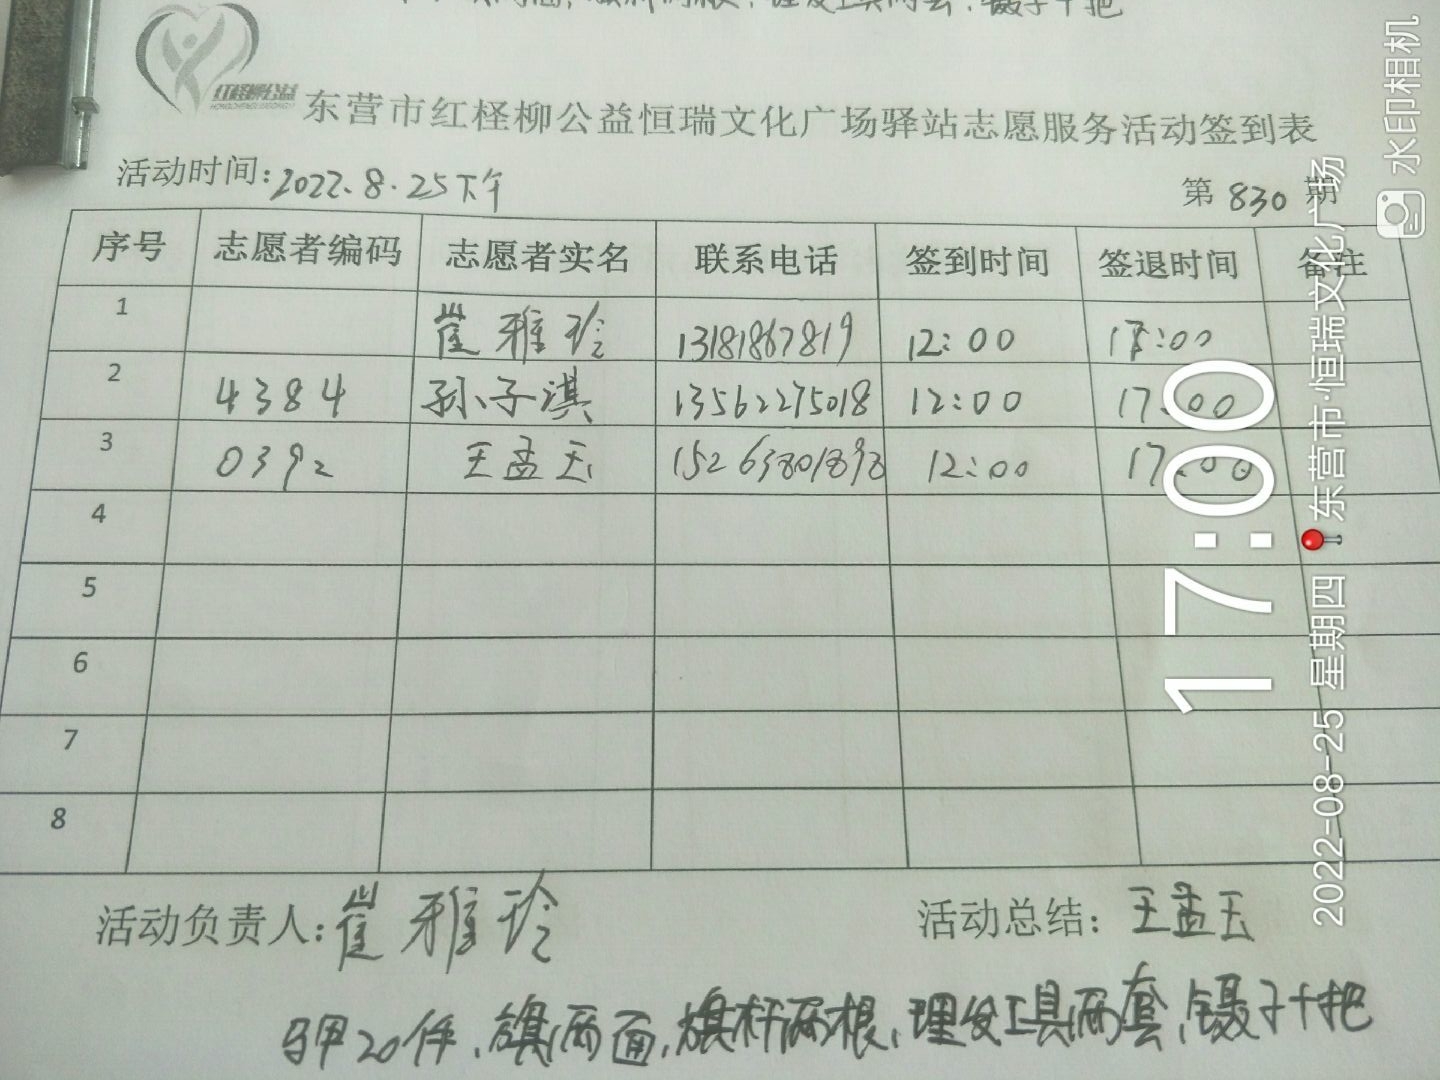 红柽柳公益
东营市红柽柳公益恒瑞文化广场驿站志愿服务活动签到表
活动时间:2022.8.25下午 第 830 期
序号 志愿者编码 志愿者实名 联系电话 签到时间 签退时间 备注
1 崔雅玲 13181867819 12:00 17:00
2 4384 孙子淇 13562275018 12:00 17:00
3 0392 王孟玉 15263801898 12:00 17:00
4
5
6
7
8
活动负责人:崔雅玲 活动总结:王孟玉
马甲20件,旗两面,旗杆两根,理发工具两套,镊子十把
水印相机
17:00
2022-08-25 星期四 东营市·恒瑞文化广场